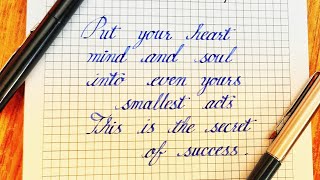 Put your heart
mind and soul
into even yours
smallest acts
This is the secret
of success.